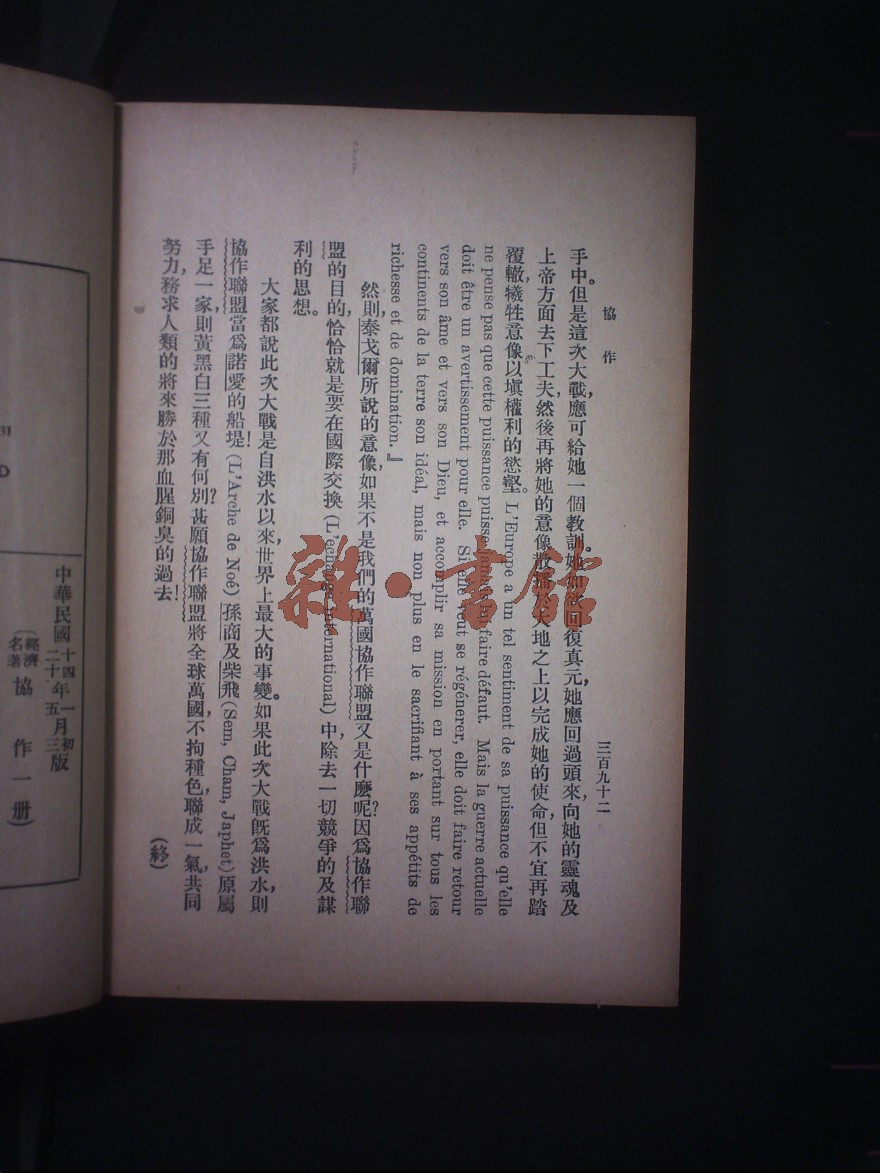 協作
三百九十二
手中。但是這次大戰，應可給她一個教訓。她如欲回復真元，她應回過頭來，向她的靈魂及
上帝方面去下工夫，然後再將她的意像散播於天地之上以完成她的使命，但不宜再踏
覆轍，犧牲意像以塡權利的慾壑。L'Europe a un tel sentiment de sa puissance qu'elle
ne pense pas que cette puissance puisse jamais lui faire défaut. Mais la guerre actuelle
doit être un avertissement pour elle. Si elle veut se régénerer, elle doit faire retour
vers son âme et vers son Dieu, et accomplir sa mission en portant sur tous les
continents de la terre son idéal, mais non plus en le sacrifiant à ses appétits de
richesse et de domination.』
然則，泰戈爾所說的意像，如果不是我們的萬國協作聯盟又是什麽呢？因爲協作聯
盟的目的，恰恰就是要在國際交換 (L'echange international) 中，除去一切競爭的及謀
利的思想。
大家都說此次大戰是自洪水以來，世界上最大的事變。如果此次大戰旣爲洪水，則
協作聯盟當爲諾愛的船堤！(L'Arche de Noé) 孫商及柴飛 (Sem, Cham, Japhet) 原屬
手足一家，則黃黑白三種又有何別？甚願協作聯盟將全球萬國，不拘種色，聯成一氣，共同
努力，務求人類的將來勝於那血腥銅臭的過去！
（終）
中華民國十四年一月初版
二十年五月三版
（經濟名著）協作一冊）
31
D
雜·書館